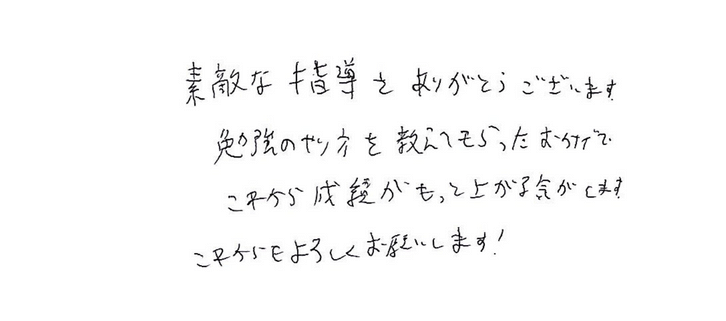 素敵な指導をありがとうございます
勉強のやり方を教えてもらったおかげで
これから成績がもっと上がる気がします
これからもよろしくお願いします!